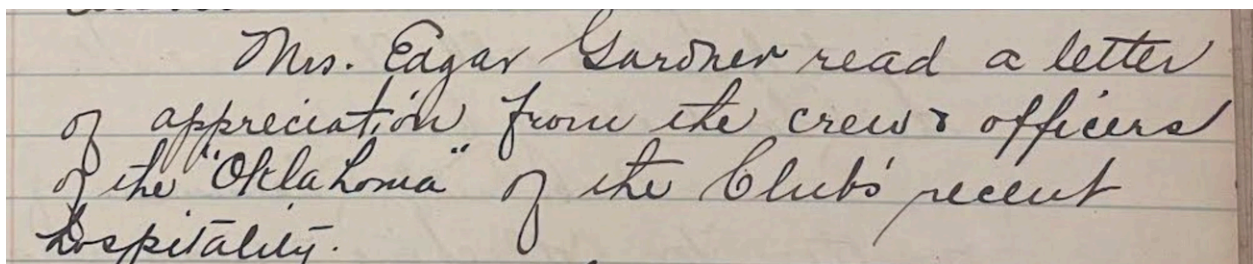 Mrs. Edgar Gardner read a letter
of appreciation from the crew & officers
of the "Oklahoma" of the Club's recent
hospitality.